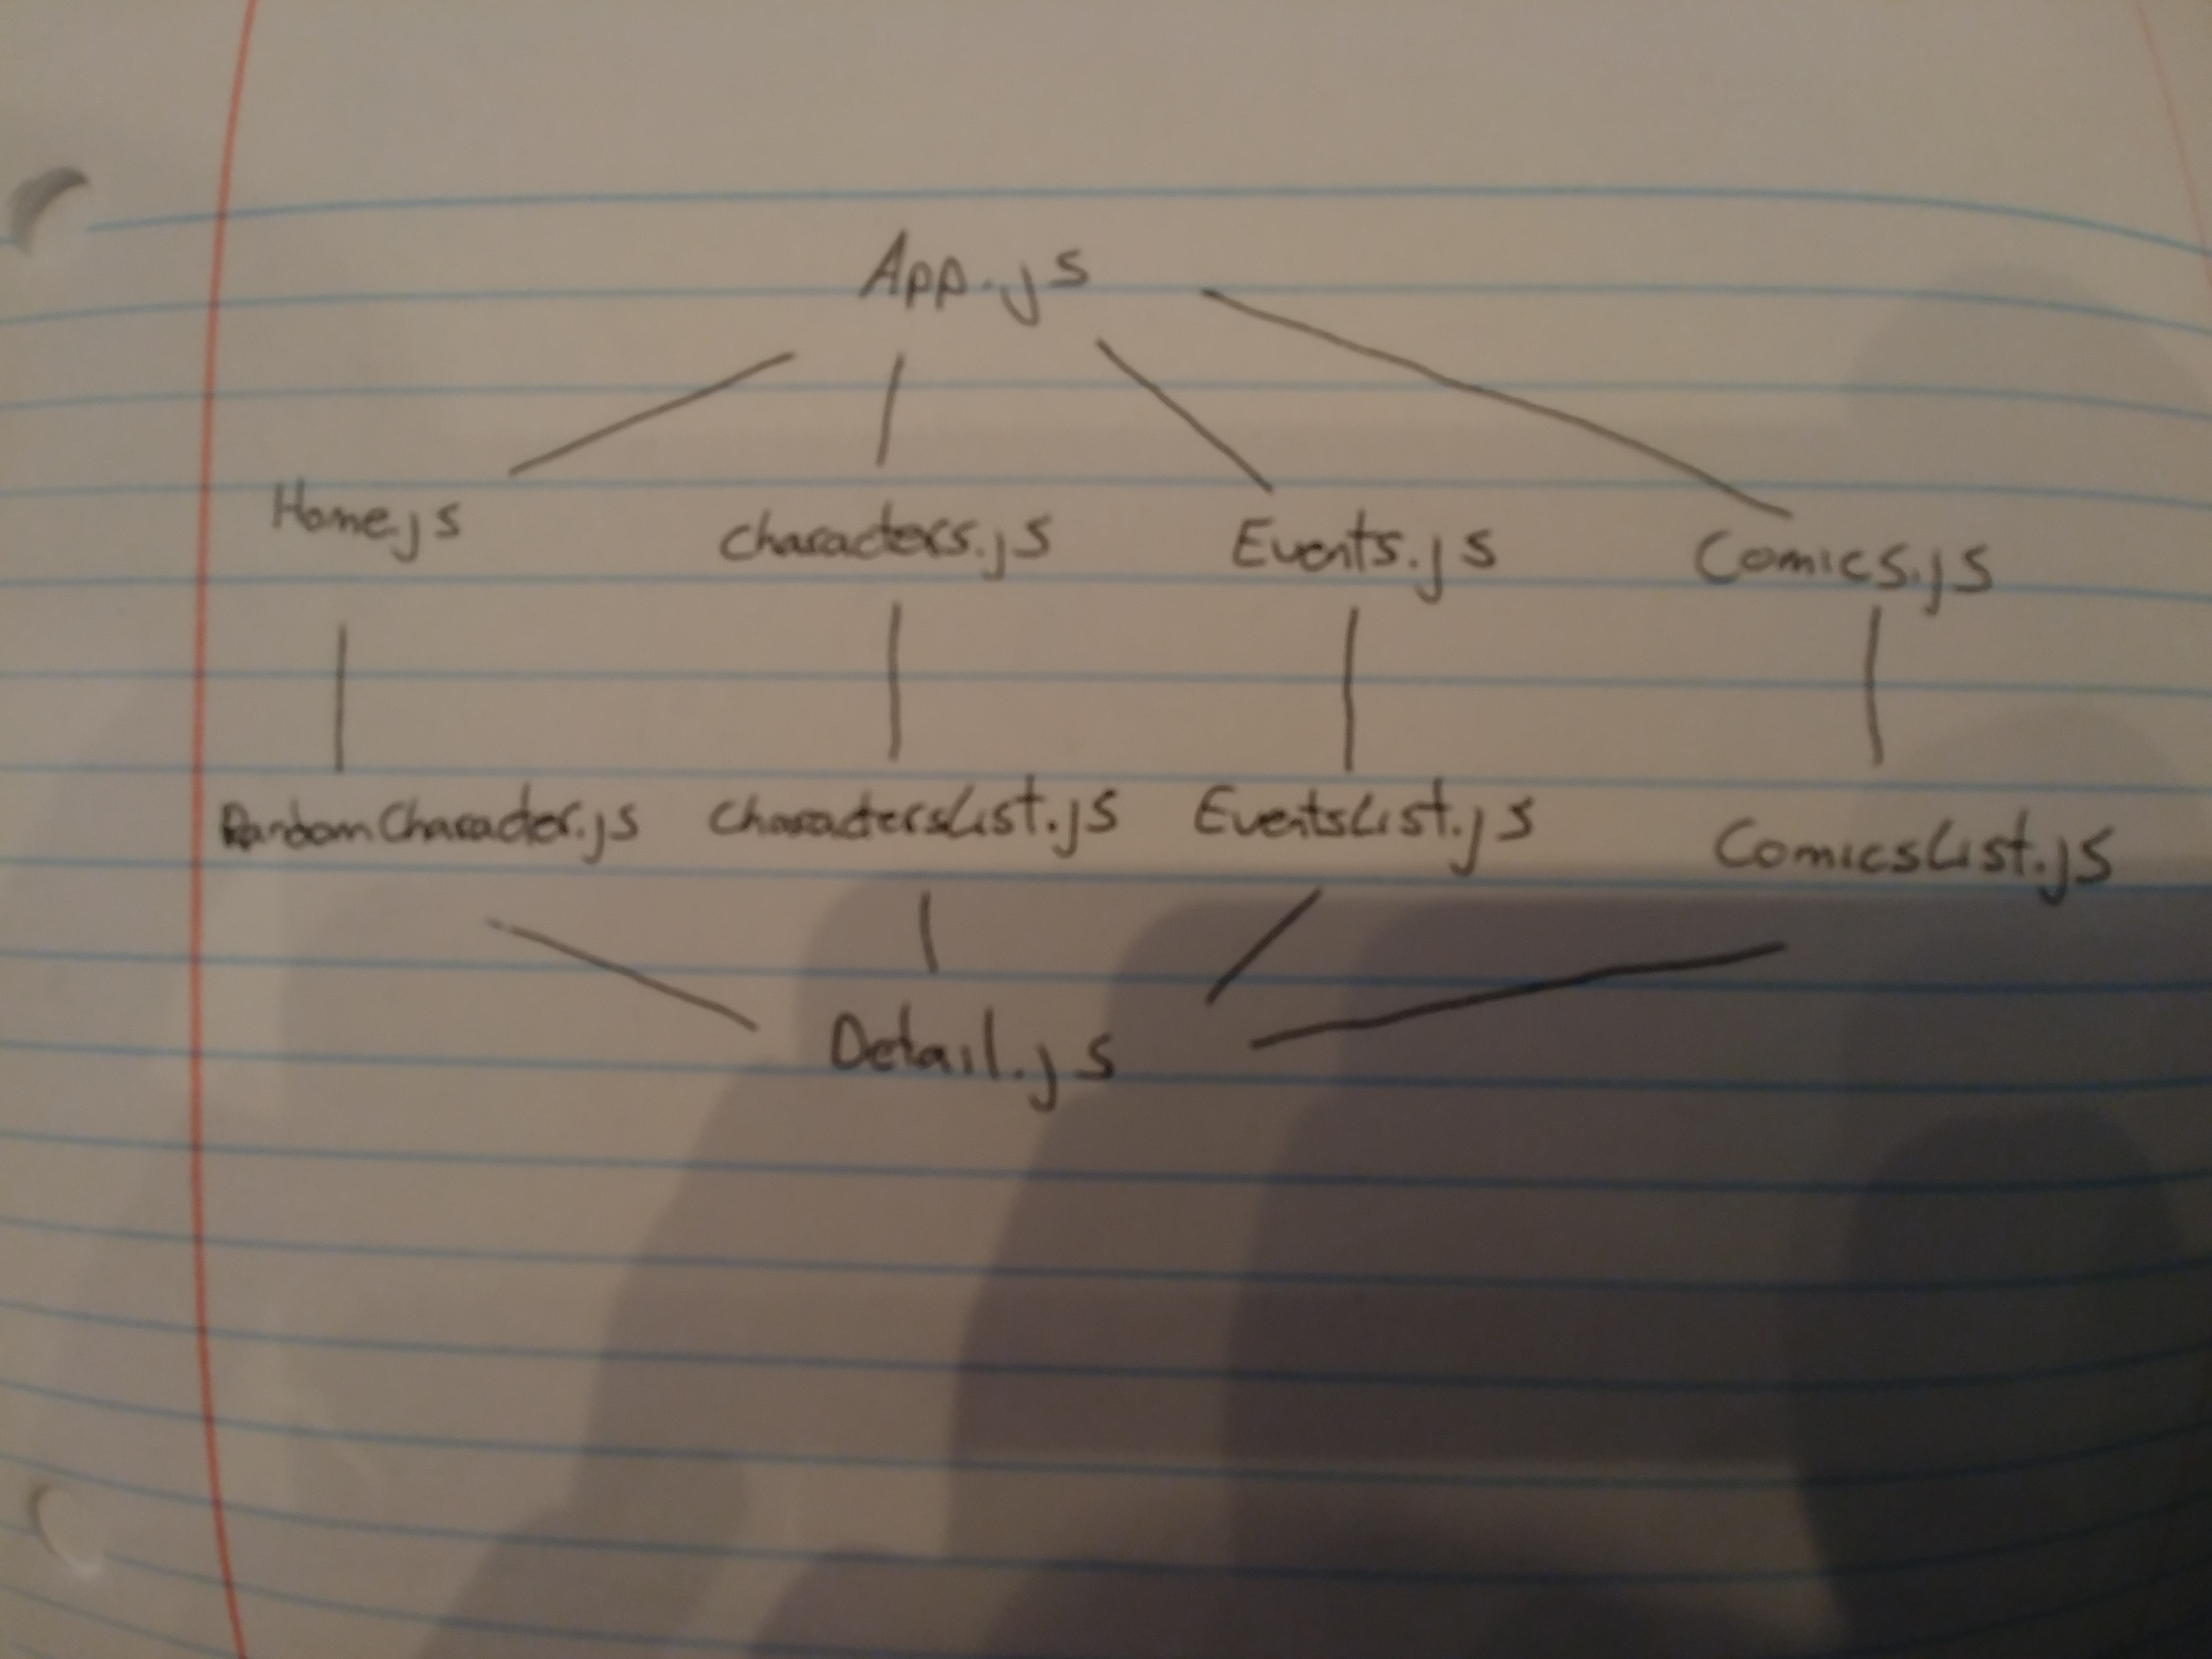 App.js
Home.js characters.js Events.js Comics.js
RandomCharacter.js CharactersList.js EventsList.js ComicsList.js
Detail.js